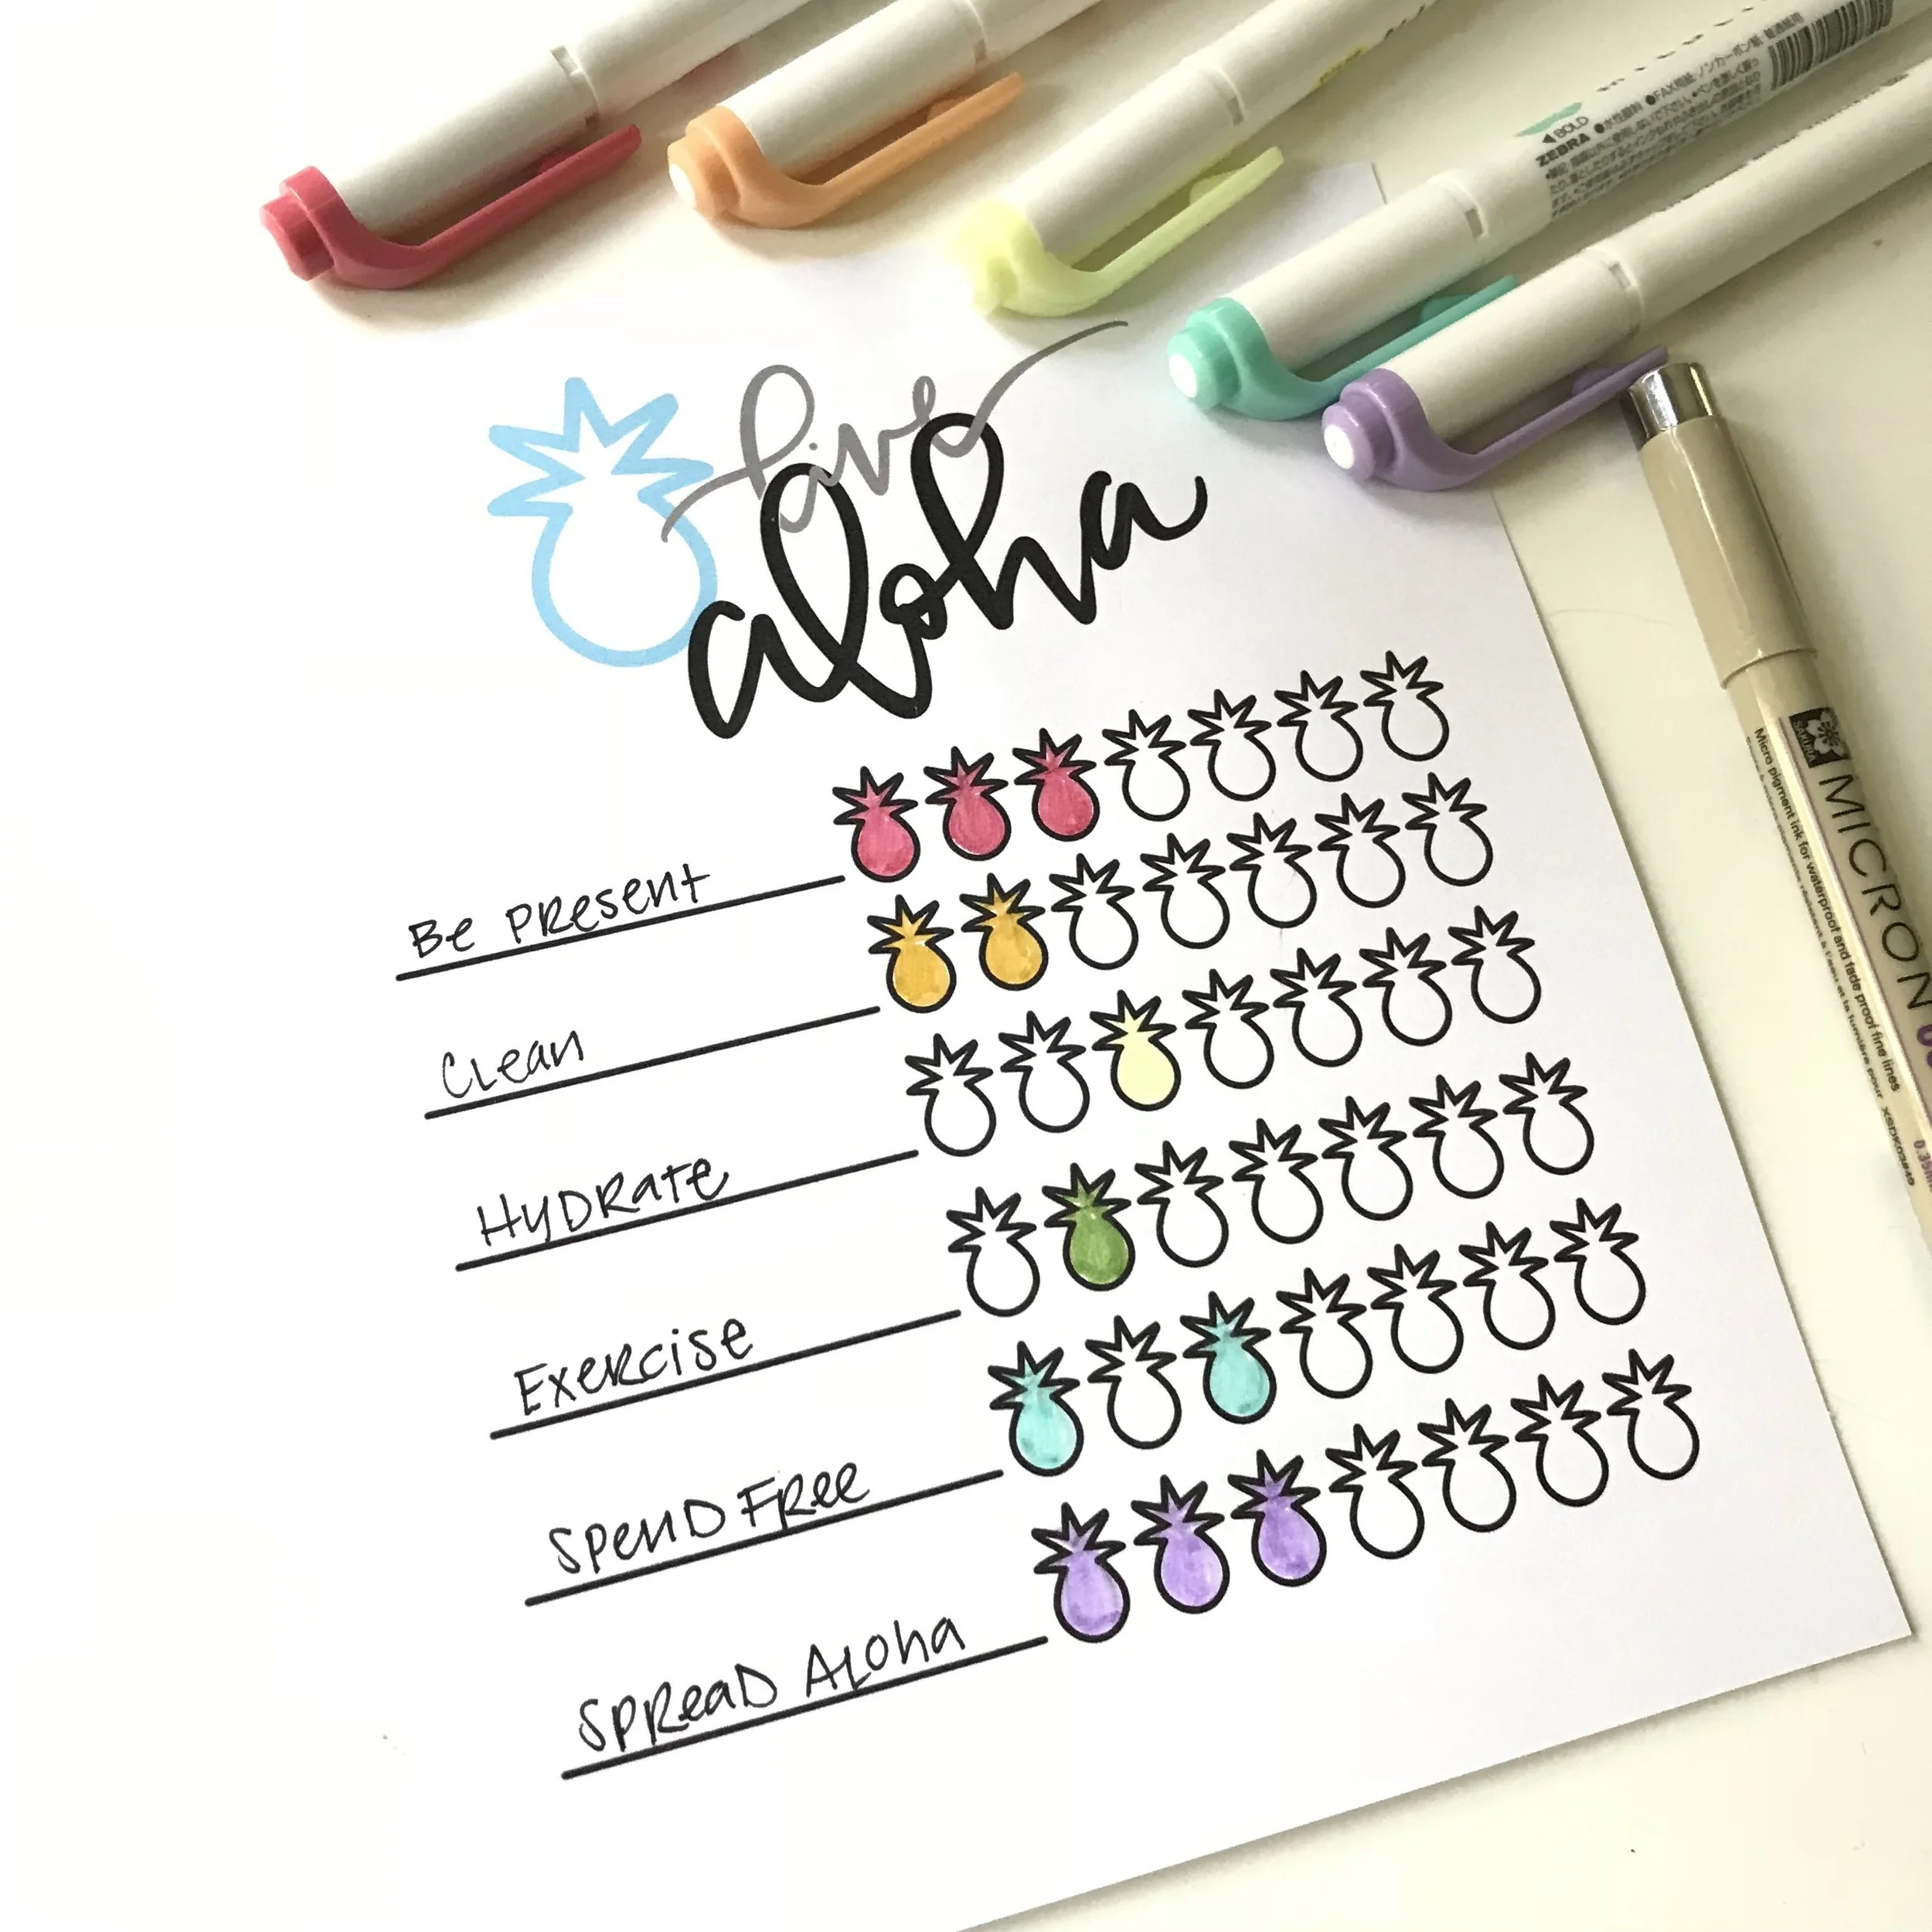 live
aloha
Be PResent
CLean
HyDRate
ExeRcise
SPenD FRee
SPReaD ALoha
◀BOLD
ZEBRA
SAKURA
MICRON
Micro pigment ink for waterproof and fade proof fine lines
XSDK03#49